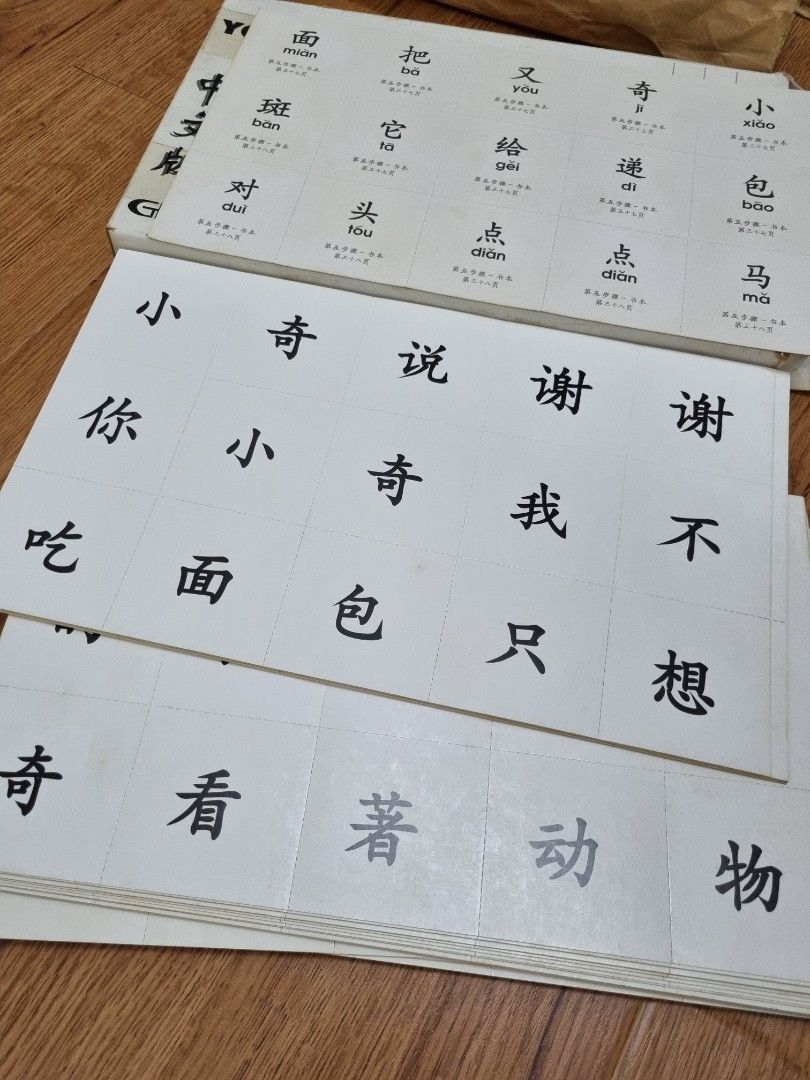 中
文
版
面 把 又 奇 小
miàn bǎ yòu jī xiǎo
第五步骤－书本 第五步骤－书本 第五步骤－书本 第五步骤－书本 第五步骤－书本
第三十七页 第三十七页 第三十七页 第三十七页 第三十七页
斑 它 给 递 包
bān tā gěi dì bāo
第五步骤－书本 第五步骤－书本 第五步骤－书本 第五步骤－书本 第五步骤－书本
第三十八页 第三十七页 第三十七页 第三十七页 第三十七页
对 头 点 点 马
duì tóu diǎn diǎn mǎ
第五步骤－书本 第五步骤－书本 第五步骤－书本 第五步骤－书本 第五步骤－书本
第三十八页 第三十八页 第三十八页 第三十八页 第三十八页
小 奇 说 谢 谢
你 小 奇 我 不
吃 面 包 只 想
奇 看 著 动 物